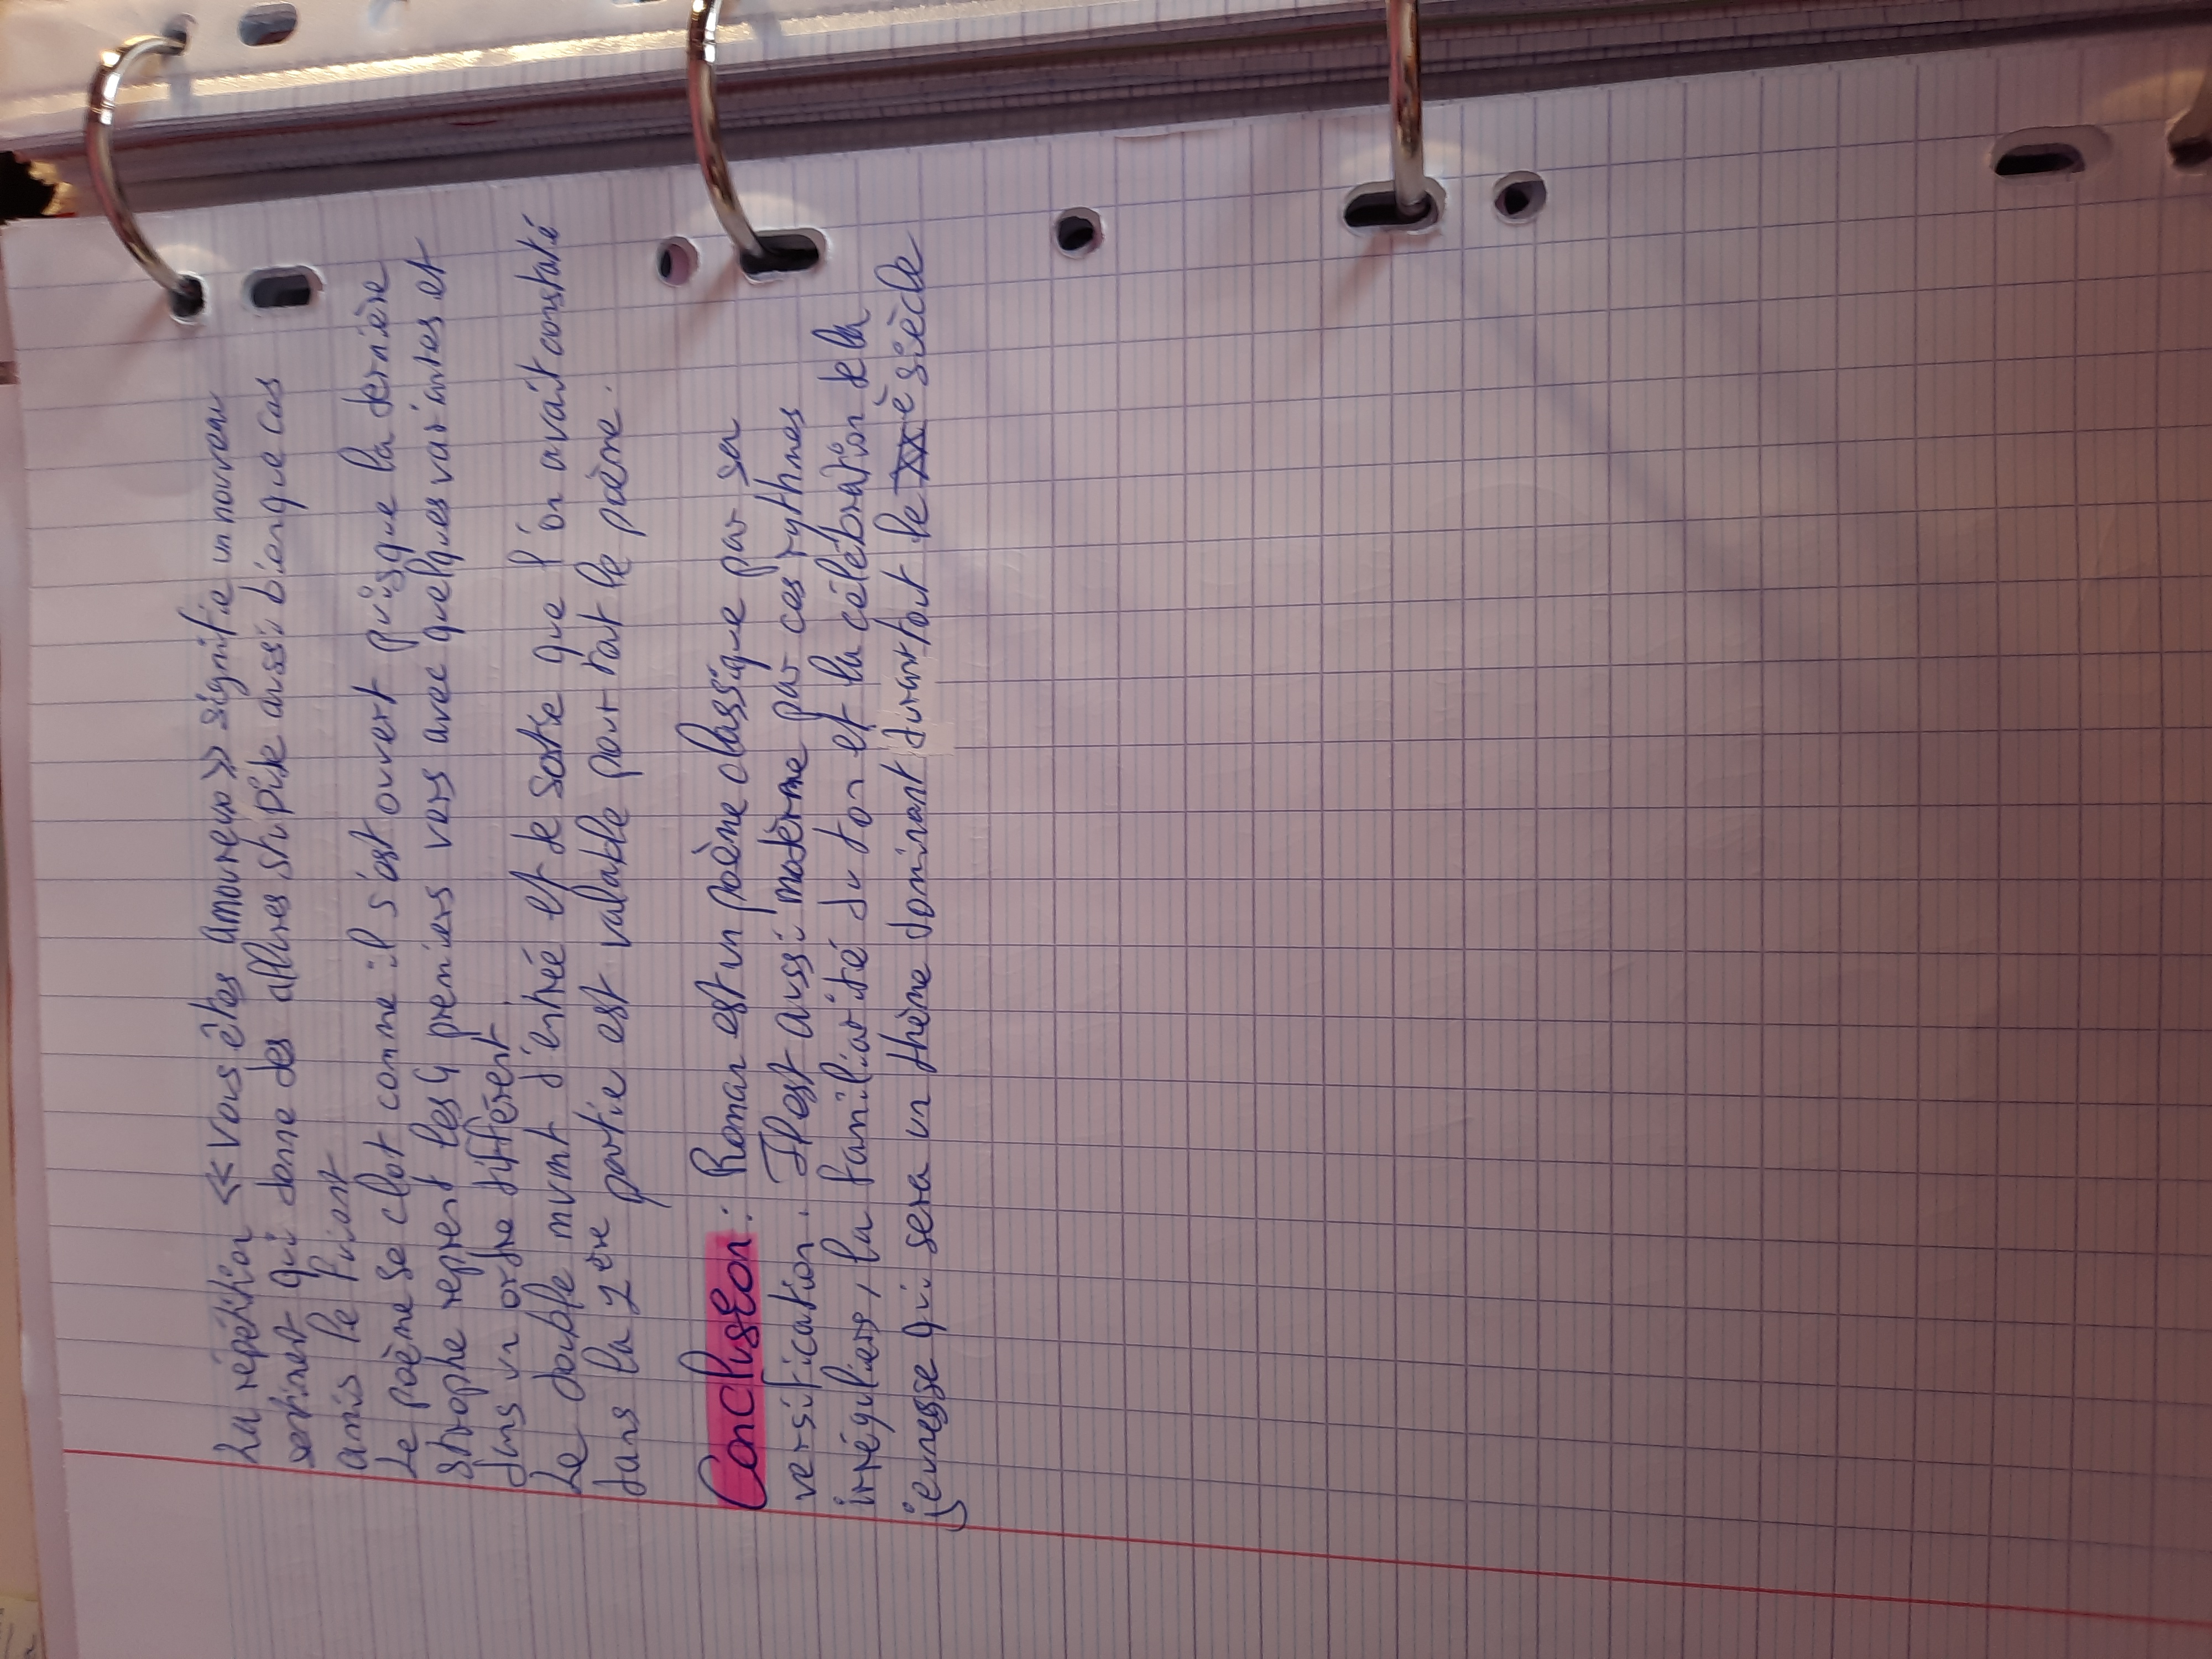 La répétition « Vous êtes amoureux » signifie un nouveau
sentiment qui donne des allures stupide aussi bien que ces
amis le fuient
Le poème se clot comme il s'est ouvert puisque la dernière
strophe reprend les 4 premiers vers avec quelques variantes et
dans un ordre différent.
Le double mvmt d'entrée et de sortie que l'on avait constaté
dans la 1ère partie est valable pour tout le poème.
Conclusion : Roman est un poème classique par sa
versification. Il est aussi moderne par ces rythmes
irréguliers, la familiarité du ton et la célébration de la
jeunesse qui sera un thème dominant durant tout le XXè siècle